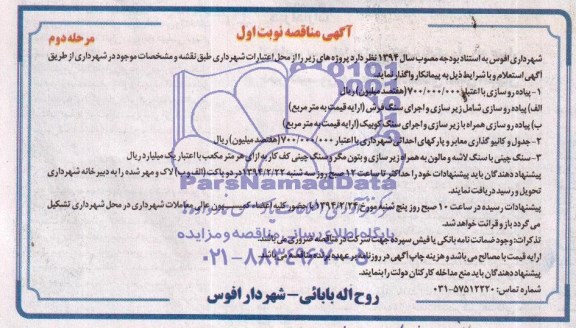 آگهی مناقصه نوبت اول
مرحله دوم
شهرداری افوس به استناد بودجه مصوب سال ۱۳۹۴ نظر دارد پروژه های زیر را از محل اعتبارات شهرداری طبق نقشه و مشخصات موجود در شهرداری از طریق
آگهی استعلام و با شرایط ذیل به پیمانکار واگذار نماید.
۱ - پیاده رو سازی با اعتبار ۷۰۰/۰۰۰/۰۰۰ (هفتصد میلیون) ریال
الف) پیاده رو سازی شامل زیر سازی و اجرای سنگ فرش (ارایه قیمت به متر مربع)
ب) پیاده رو سازی همراه با زیر سازی و اجرای سنگ کوبیک (ارایه قیمت به متر مربع)
۲ - جدول و کانیو گذاری معابر و پارکهای احداثی شهرداری با اعتبار ۷۰۰/۰۰۰/۰۰۰ (هفتصد میلیون) ریال
۳ - سنگ چینی با سنگ لاشه و مالون به همراه زیر سازی و بتون مگر و سنگ چینی کف کار به ازای هر متر مکعب با اعتبار یک میلیارد ریال
پیشنهاد دهندگان باید پیشنهادات خود را حداکثر تا ساعت ۱۲ صبح روز سه شنبه ۱۳۹۴/۲/۲۲ در دو پاکت (الف و ب) لاک و مهر شده را به دبیرخانه شهرداری
تحویل و رسید دریافت نمایند.
پیشنهادات رسیده در ساعت ۱۰ صبح روز پنج شنبه مورخ ۱۳۹۴/۲/۲۴ با حضور کلیه اعضاء کمیسیون عالی معاملات شهرداری در محل شهرداری تشکیل
می گردد باز و قرائت خواهد شد.
تذکرات: وجود ضمانت نامه بانکی یا فیش سپرده جهت شرکت در مناقصه ضروری می باشد.
ارایه قیمت با مصالح می باشد و هزینه چاپ آگهی در روزنامه بر عهده برنده مناقصه می باشد.
پیشنهاد دهندگان باید منع مداخله کارکنان دولت را بنمایند.
شماره تماس: ۵۷۵۱۲۲۲۰-۰۳۱
روح اله بابائی - شهردار افوس
ParsNamadData
پایگاه اطلاع رسانی مناقصه و مزایده
۰۲۱-۸۸۳۴۹۶۷۰